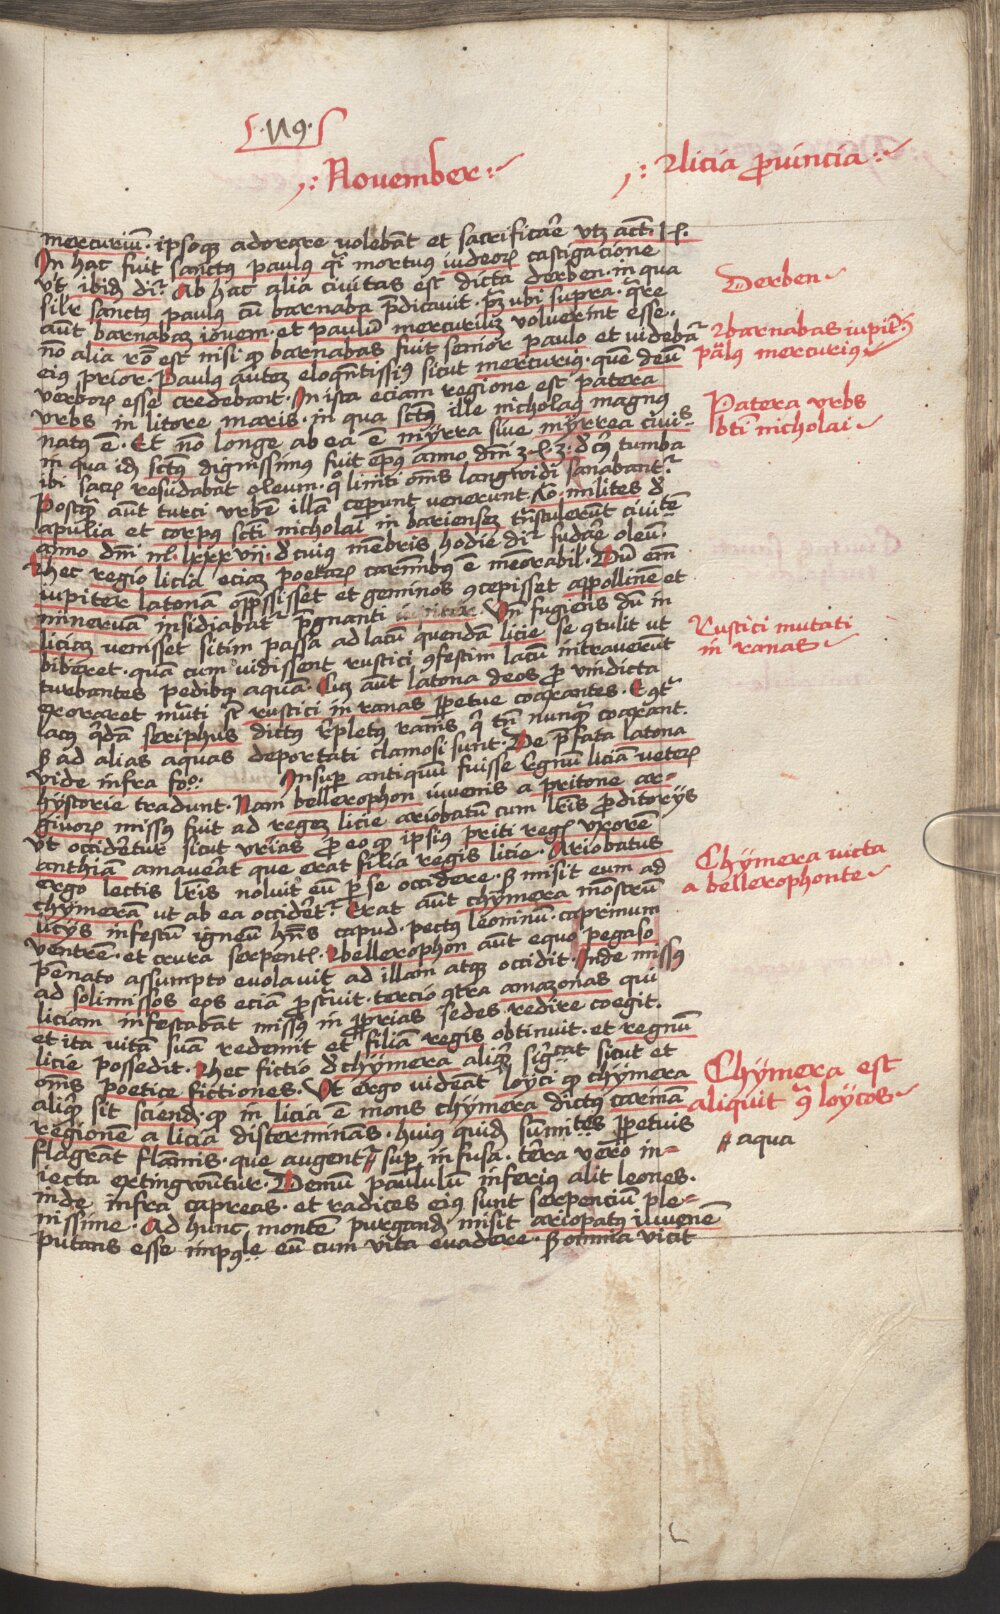 ·119·
November
Licia ꝓuincia
mercuriū· ipsosqꝫ adorare uolebāt et sacrificar̄e vtꝫ act·
In hac fuit sanctꝰ paulus qͥ mortuus iudeoꝝ castigacione
vt ibid dr̄· Ab hac alia ciuitas est dicta derben· in qua
silr̄ sanctꝰ paulus cū barnaba p̄dicauit· ꝓꝫ vbi supra· qͣre
aūt barnabaꝫ iouem· et paulū mercuriuꝫ voluerint esse·
nō alia rō est nisi· ꝙ barnabas fuit senior paulo et videbāͬ
eiꝰ prior· Paulꝰ auteꝫ eloqn̄tissiꝰ sicut mercuriꝰ· quē deū
verboꝝ esse credebant· In ista eciam regione est patera
vrbs in litore maris· in qua sctꝰ ille nicholaꝰ magnꝰ
natꝰ ē· Et nō longe ab ea ē myrra siue myrrea ciuis
in qua id sctꝰ dignissimus fuit ep̄us anno dm̄ tumba
ibi sacꝝ resudabat oleum· qͦ liniti om̄s langwidi sanabantͬ
Postqͣ aūt turci vrbē illā ceperunt venerunt milites d̄
apulia et corpus scti nicholai in bariensez tn̄stulerūt ciuitē
anno dm̄ mͦ· lxxxvij· d̄ cuius mēbris hodie drͬ fudar̄e oleū·
Hec regio licia eciaꝫ poetaꝝ carmībꝰ ē memorabil· Dū em̄
iupiter latonam opp̄ssisset et geminos ꝯcepisset appollinē et
mineruā insidiabatͬ p̄gnanti iupiter· Vn̄ fugiens dū in
liciaꝫ venisset sitim passa ad lacū quendā licie se ꝯtulit ut
biberet· quā cum vidissent rustici ꝯfestim lacū intrauerūt
turbantes pedibꝰ aquā· Cuꝫ aūt latona deos ꝓ vindicta
exoraret mūti st̄ rustici in ranas ꝑpetue coaxantes·
lacꝰ qͥdā seriphus dictꝰ r̄pletꝰ ranis qͥ tn̄ nunqͣ coaxant·
sꝫ ad alias aquas deportati clamosi sunt· De p̄fata latona
vide infra foͦ· Insuꝑ antiquū fuisse r̄gnū liciā veteꝝ
hystorie tradunt· Nam bellerophon iuuenis a pritone ar-
giuoꝝ missꝰ fuit ad regeꝫ licie ariobatū cum lr̄is ꝓditorijs
vt occid̄retur sicut vrias ꝓ eo ꝙ ipsiꝰ priti regꝭ vxorē
anthiā amauer̄at que erat filia regis licie· Ariobatus
ergo lectis lr̄is noluit eū ꝑ se occidere· sꝫ misit eum ad
chymerā ut ab ea occid̄retͬ· Erat aūt chymera mōstrū
licijs infestū igneū hn̄s capud· pectꝰ leoninū· caprinum
ventrē· et crura serpentꝭ· Bellerophon aūt equo pegaso
pēnato assumpto euolauit ad illam atqꝫ occidit· Inde missꝰ
ad solimissos eos eciā ꝓstͣuit· tercio ꝯtra amazonas qui
liciam infestabāt missꝰ in ꝓprias sedes redire coegit·
et ita vitā suā redemit et filiā regis obtinuit· et regnū
licie possedit· Hec fictio d̄ chymera aliqͥd sigͨcat sicut et
om̄s poetice fictiones· Vt ergo videāt loyci ꝙ chymera
aliqͥd sit sciend· ꝙ in licia ē mons chymera dictꝰ carinā
regionē a licia disterminās· huiꝰ quid sūmites ꝑpetuis
flagrāt flāmis· que augentͬ suꝑ infusa· terra vero in-
iecta extingwūtur· Demū paululū inferius alit leones·
inde infra capreas· et radices eiꝰ sunt serpenciū ple-
nissime· Ad hunc montē purgand misit ariopatꝰ iuuenē
putans esse impꝰle eū cum vita euadere· sꝫ omnia vicit
Derben
Barnabas iupiͭ
paūlꝰ mercuriꝰ
Patera vrbs
bti nicholai
Rustici mutati
in ranas
Chymera victa
a bellerophonte
Chymera est
aliquit ꝯͣ loycos
aqua